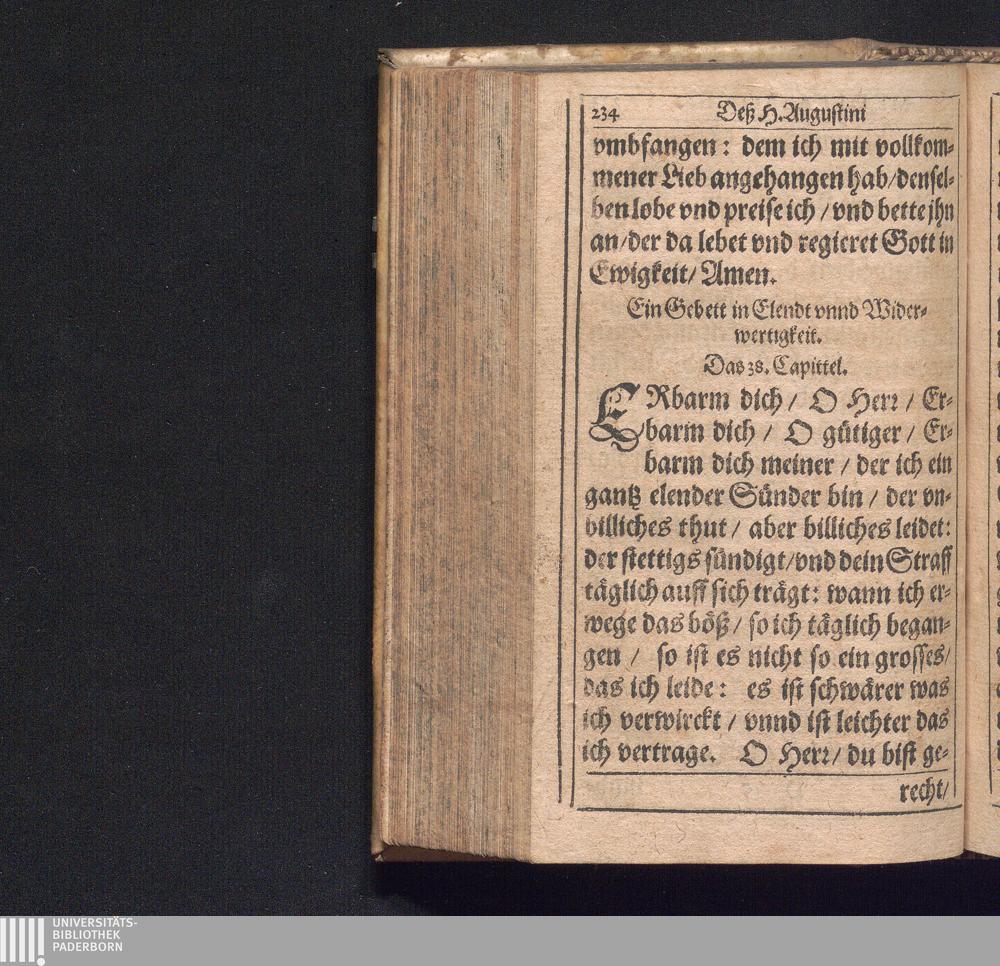 234 Deß H. Augustini
vmbfangen: dem ich mit vollkom-
mener Lieb angehangen hab/ densel-
ben lobe vnd preise ich / vnd bette jhn
an/ der da lebet vnd regieret Gott in
Ewigkeit/ Amen.
Ein Gebett in Elendt vnnd Wider-
wertigkeit.
Das 38. Capittel.
ERbarm dich / O Herr / Er-
barm dich / O gütiger / Er-
barm dich meiner / der ich ein
gantz elender Sünder bin / der vn-
billiches thut / aber billiches leidet:
der stettigs sündigt/ vnd dein Straff
täglich auff sich trägt: wann ich er-
wege das böß / so ich täglich began-
gen / so ist es nicht so ein grosses/
das ich leide: es ist schwärer was
ich verwirckt / vnnd ist leichter das
ich vertrage. O Herr/ du bist ge-
recht/
UNIVERSITÄTS-
BIBLIOTHEK
PADERBORN